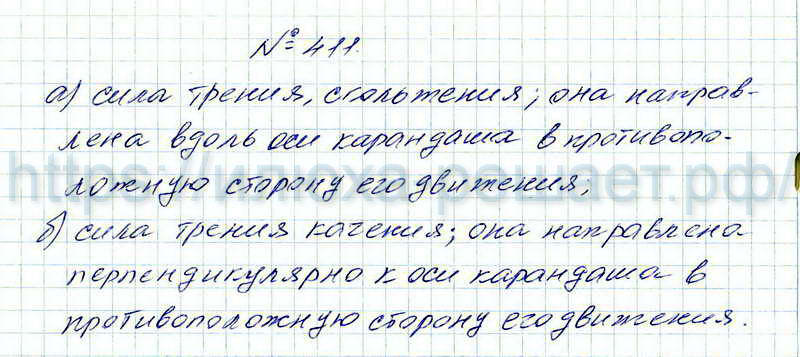 № 411.
а) сила трения, скольжения; она направ-
лена вдоль оси карандаша в противопо-
ложную сторону его движения;
б) сила трения качения; она направлена
перпендикулярно к оси карандаша в
противоположную сторону его движения.